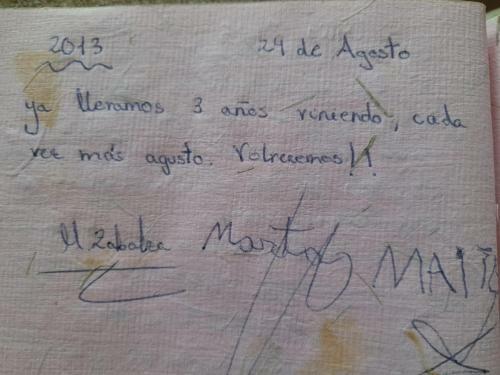 2013 29 de Agosto
ya llevamos 3 años viniendo, cada
vez más agusto. Volveremos!!
M Zabalza Marta MAITE